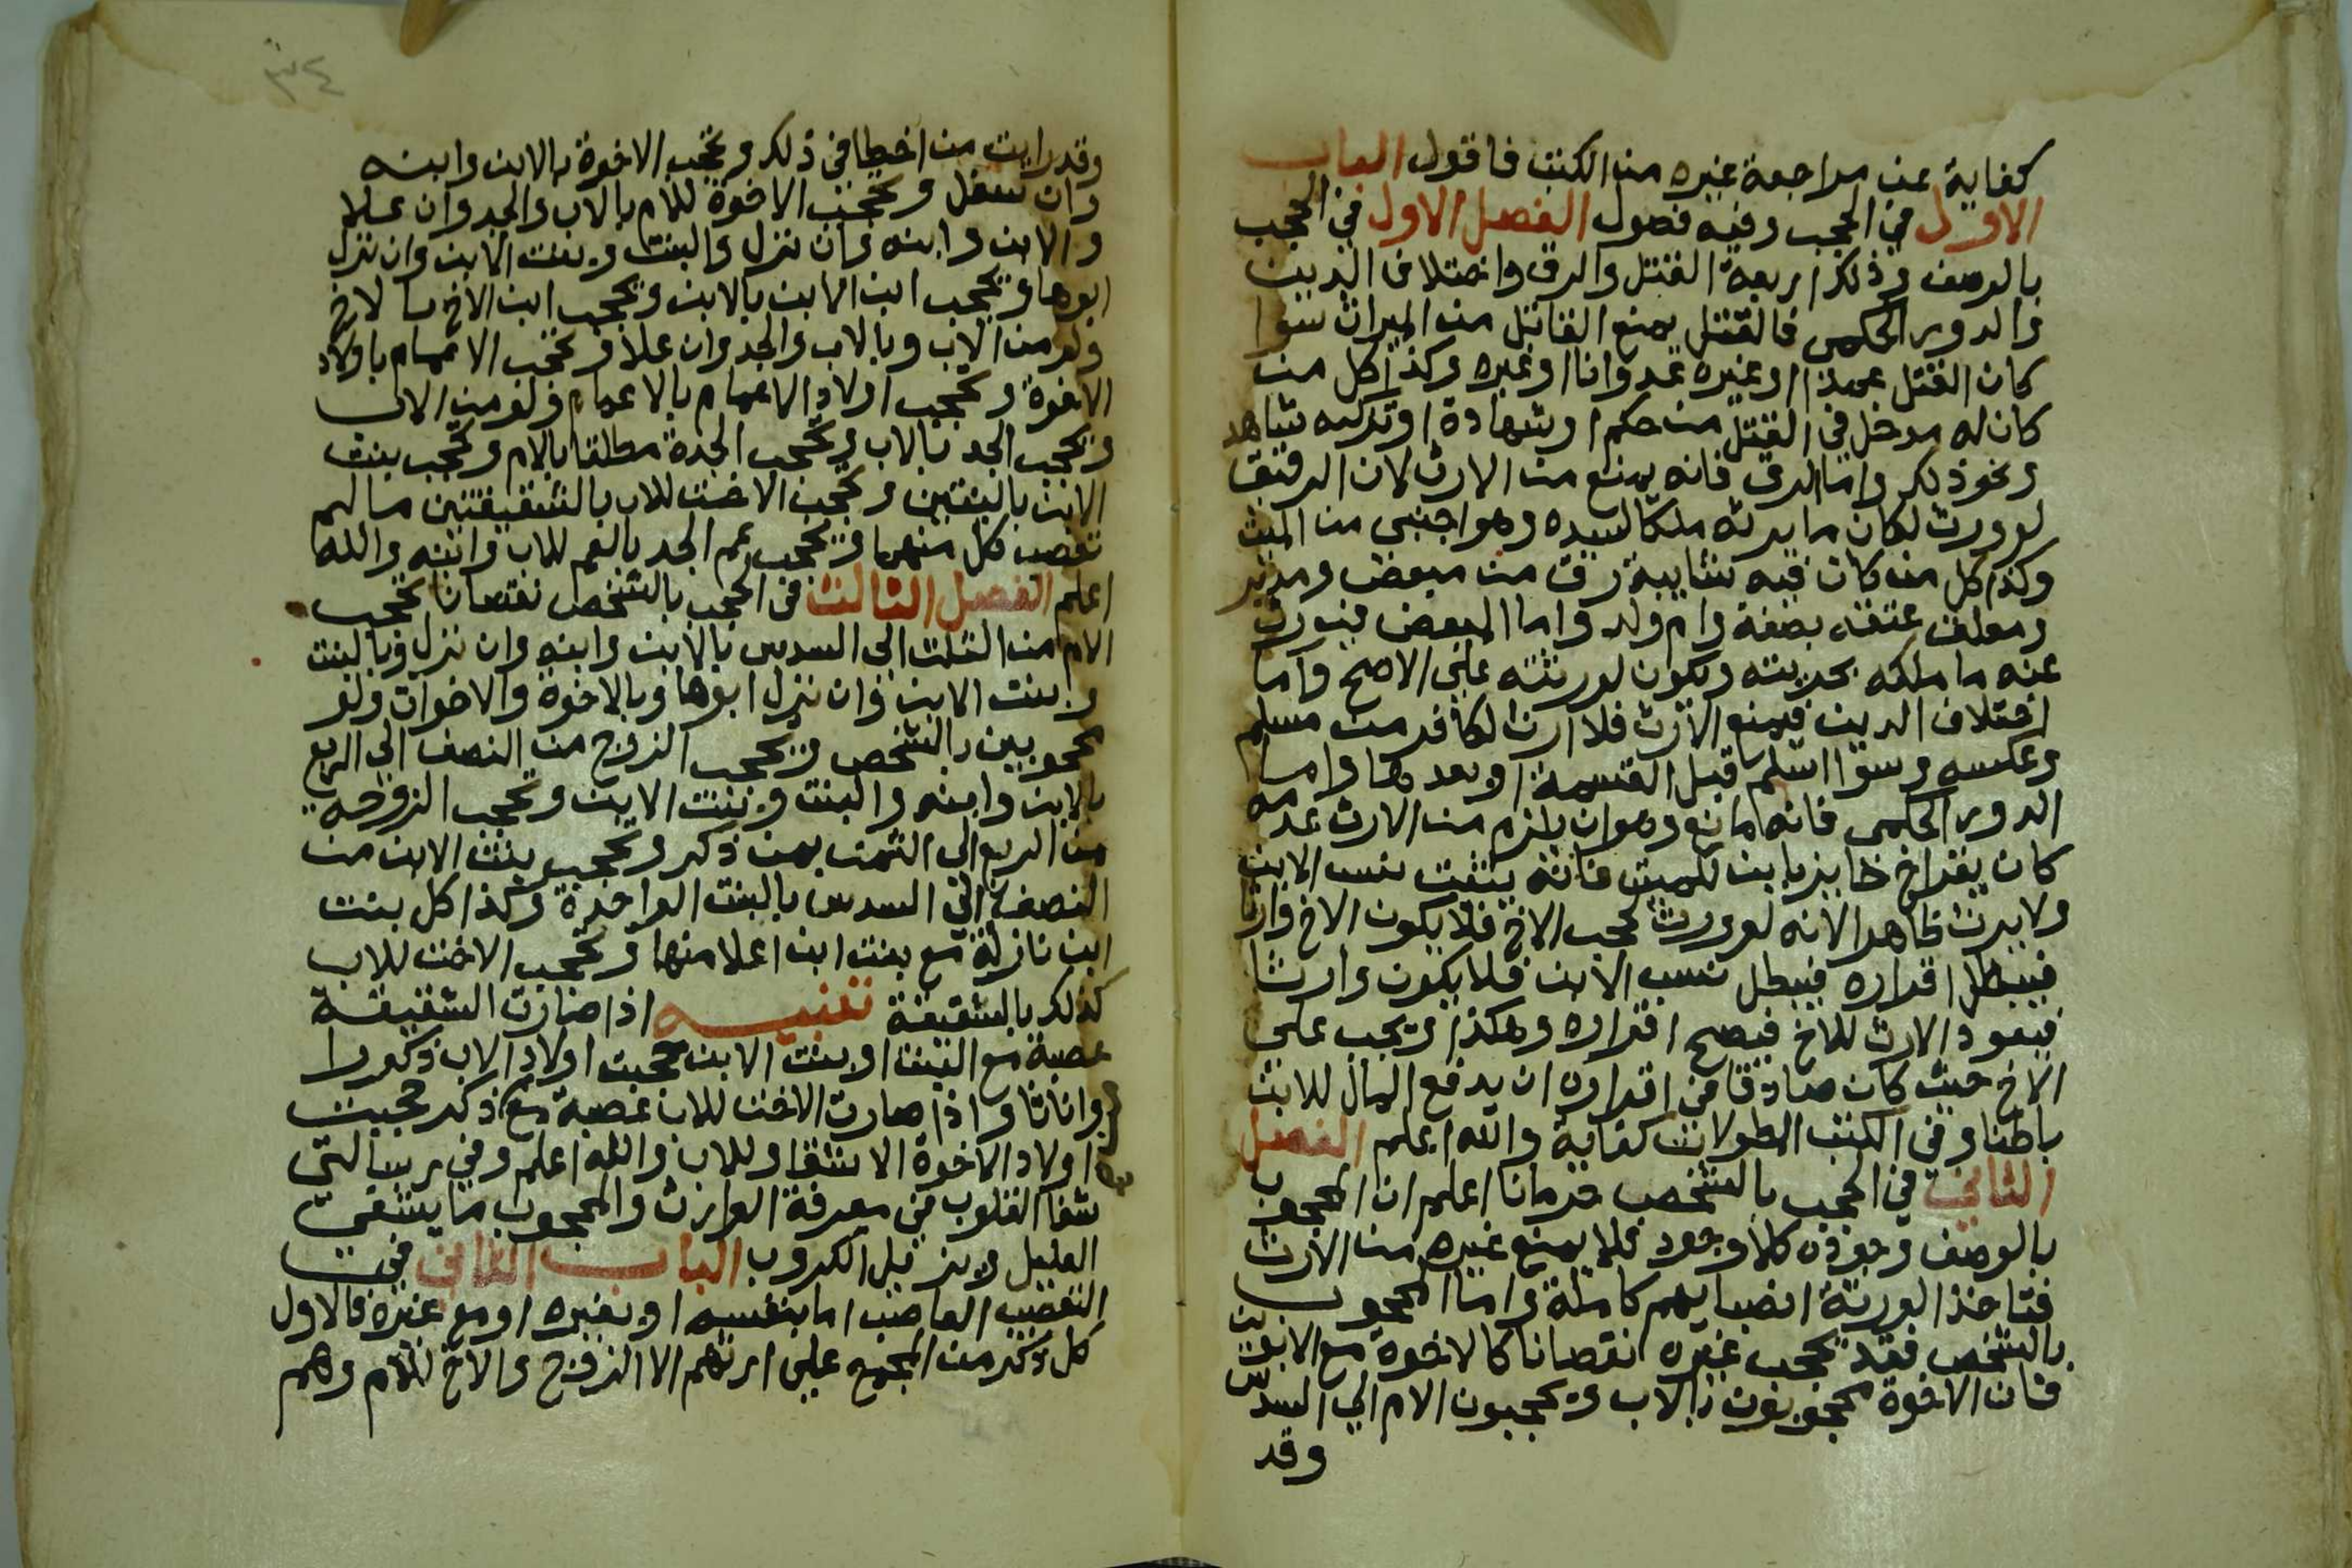 كفاية عن مراجعة غيره من الكتب فاقول الباب
الاول في الحجب وفيه فصول الفصل الاول في الحجب
بالوصف وذلك اربعة القتل والرق واختلاف الدين
والدور الحكمي فالقتل يمنع القاتل من الميراث سوا
كان القتل عمدا او غيره عدوانا او غيره وكذا كل من
كان له مدخل في القتل من حكم او شهادة او تزكيه شاهد
ونحو ذلك واما الرق فانه يمنع من الارث لان الرقيق
لو ورث لكان ما يرثه ملكا لسيده وهو اجنبي من الميت
وكذا كل من كان فيه شايبة رق من مبعض ومدبر
ومعلق عتقه بصفة وام ولد واما المبعض فيورث
عنه ما ملكه بحريته ويكون لورثته على الاصح واما
اختلاف الدين فيمنع الارث فلا ارث لكافر من مسلم
وعكسه وسوا اسلم قبل القسمة او بعدها واما
الدور الحكمي فانه مانع وهو ان يلزم من الارث عدمه
كان يقر اخ حايز بابن للميت فانه يثبت نسب الابن
ولا يرث ظاهرا لانه لو ورث لحجب الاخ فلا يكون الاخ وارثا
فيبطل اقراره فيبطل نسب الابن فلا يكون وارثا
فيعود الارث للاخ فيصح اقراره وهكذا ويجب على
الاخ حيث كان صادقا في اقراره ان يدفع المال للابن
باطنا وفي الكتب المطولات كفاية والله اعلم الفصل
الثاني في الحجب بالشخص حرمانا اعلم ان المحجوب
بالوصف وجوده كلا وجود فلا يمنع غيره من الارث
فتاخذ الورثة انصبايهم كاملة واما المحجوب
بالشخص فقد يحجب غيره نقصانا كالاخوة مع الابوين
فان الاخوة محجوبون بالاب ويحجبون الام الي السدس
وقد
٣٤
وقد رايت من اخطا في ذلك وتحجب الاخوة بالابن وابنه
وان سفل وتحجب الاخوة للام بالاب والجد وان علا
والابن وابنه وان نزل والبنت وبنت الابن وان نزل
ابوها ويحجب ابن الابن بالابن ويحجب ابن الاخ بالاخ
ولو من الاب وبالاب والجد وان علا وتحجب الاعمام باولاد
الاخوة وتحجب اولاد الاعمام بالاعمام ولو من الاب
ويحجب الجد بالاب وتحجب الجدة مطلقا بالام وتحجب بنت
الابن بالبنتين وتحجب الاخت للاب بالشقيقتين ما لم
تعصب كل منهما ويحجب عم الجد بالعم للاب وابنه والله
اعلم الفصل الثالث في الحجب بالشخص نقصانا تحجب
الام من الثلث الى السدس بالابن وابنه وان نزل وبالبنت
وابنت الابن وان نزل ابوها وبالاخوة والاخوات ولو
محجوبين بالشخص ويحجب الزوج من النصف الى الربع
بالابن وابنه والبنت وبنت الابن وتحجب الزوجه
من الربع الى الثمن بمن ذكر وتحجب بنت الابن من
النصف الى السدس بالبنت الواحدة وكذا كل بنت
ابن نازلة مع بنت ابن اعلا منها وتحجب الاخت للاب
كذلك بالشقيقة تنبيه اذا صارت الشقيقة
عصبة مع البنت او بنت الابن حجبت اولاد الاب ذكورا
واناثا واذا صارت الاخت للاب عصبة مع ذكر حجبت
اولاد الاخوة الاشقا وللاب والله اعلم وفي رسالتي
شفا القلوب في معرفة الوارث والمحجوب ما يشفي
العليل ويزيل الكروب الباب الثاني في
التعصيب العاصب اما بنفسه او بغيره او مع غيره فالاول
كل ذكر من المجمع على ارثهم الا الزوج والاخ للام وهم